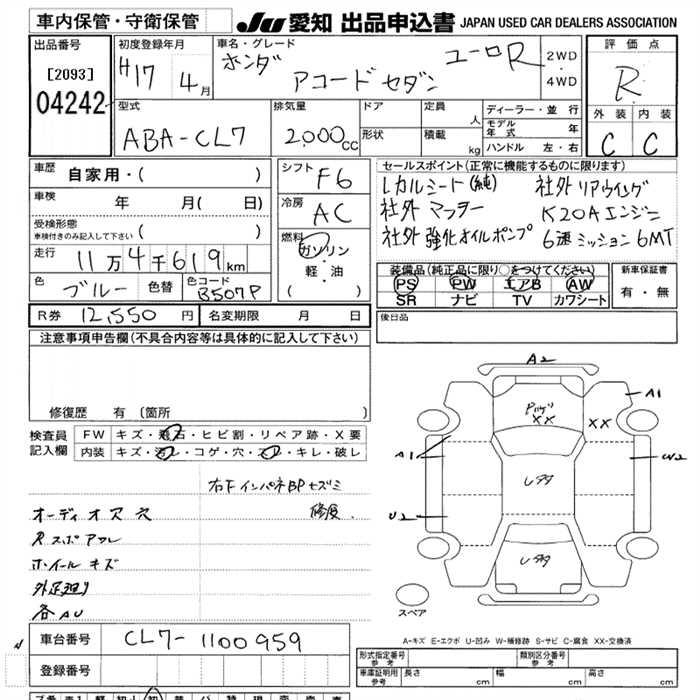 車内保管・守衛保管
JU 愛知 出品申込書 JAPAN USED CAR DEALERS ASSOCIATION
出品番号
[2093]
04242
初度登録年月
H17 4月
車名・グレード
ホンダ アコードセダン ユーロR
2WD
4WD
評価点
R
型式
ABA-CL7
排気量
2,000cc
ドア
形状
定員 人
積載 kg
ディーラー・並行
モデル年式 年
ハンドル 左・右
外装 内装
C C
車歴 自家用・( )
車検 年 月( 日)
受検形態
車検付きのみ記入して下さい ( )
走行 11万4千619km
色 ブルー 色替 色コード B507P
シフト F6
冷房 AC
燃料
ガソリン
・
軽・油
( )
セールスポイント(正常に機能するものに限ります)
レカルミート(純) 社外リアウイング
社外マフラー K20Aエンジン
社外強化オイルポンプ 6速ミッション6MT
装備品(純正品に限り○をつけてください)
PS PW エアB AW
SR ナビ TV カワシート
新車保証書
有・無
R券 12,550円 名変期限 月 日
後日品
注意事項申告欄(不具合内容等は具体的に記入して下さい)
修復歴 有 (箇所 )
検査員
記入欄
FW キズ・飛石・ヒビ割・リペア跡・X要
内装 キズ・汚レ・コゲ・穴・スレ・キレ・破レ
右下インパネBPセズミ
修復
オーディオ穴
Rスポアワレ
ホイールキズ
外足廻り
各AU
A2
A1
XX
XX
A1
W2
U2
スペア
A-キズ E-エクボ U-凹み W-補修跡 S-サビ C-腐食 XX-交換済
車台番号 CL7-1100959
登録番号
形式指定番号
参考
類別区分番号
参考
車庫証明用
参考
長さ cm 幅 cm 高さ cm